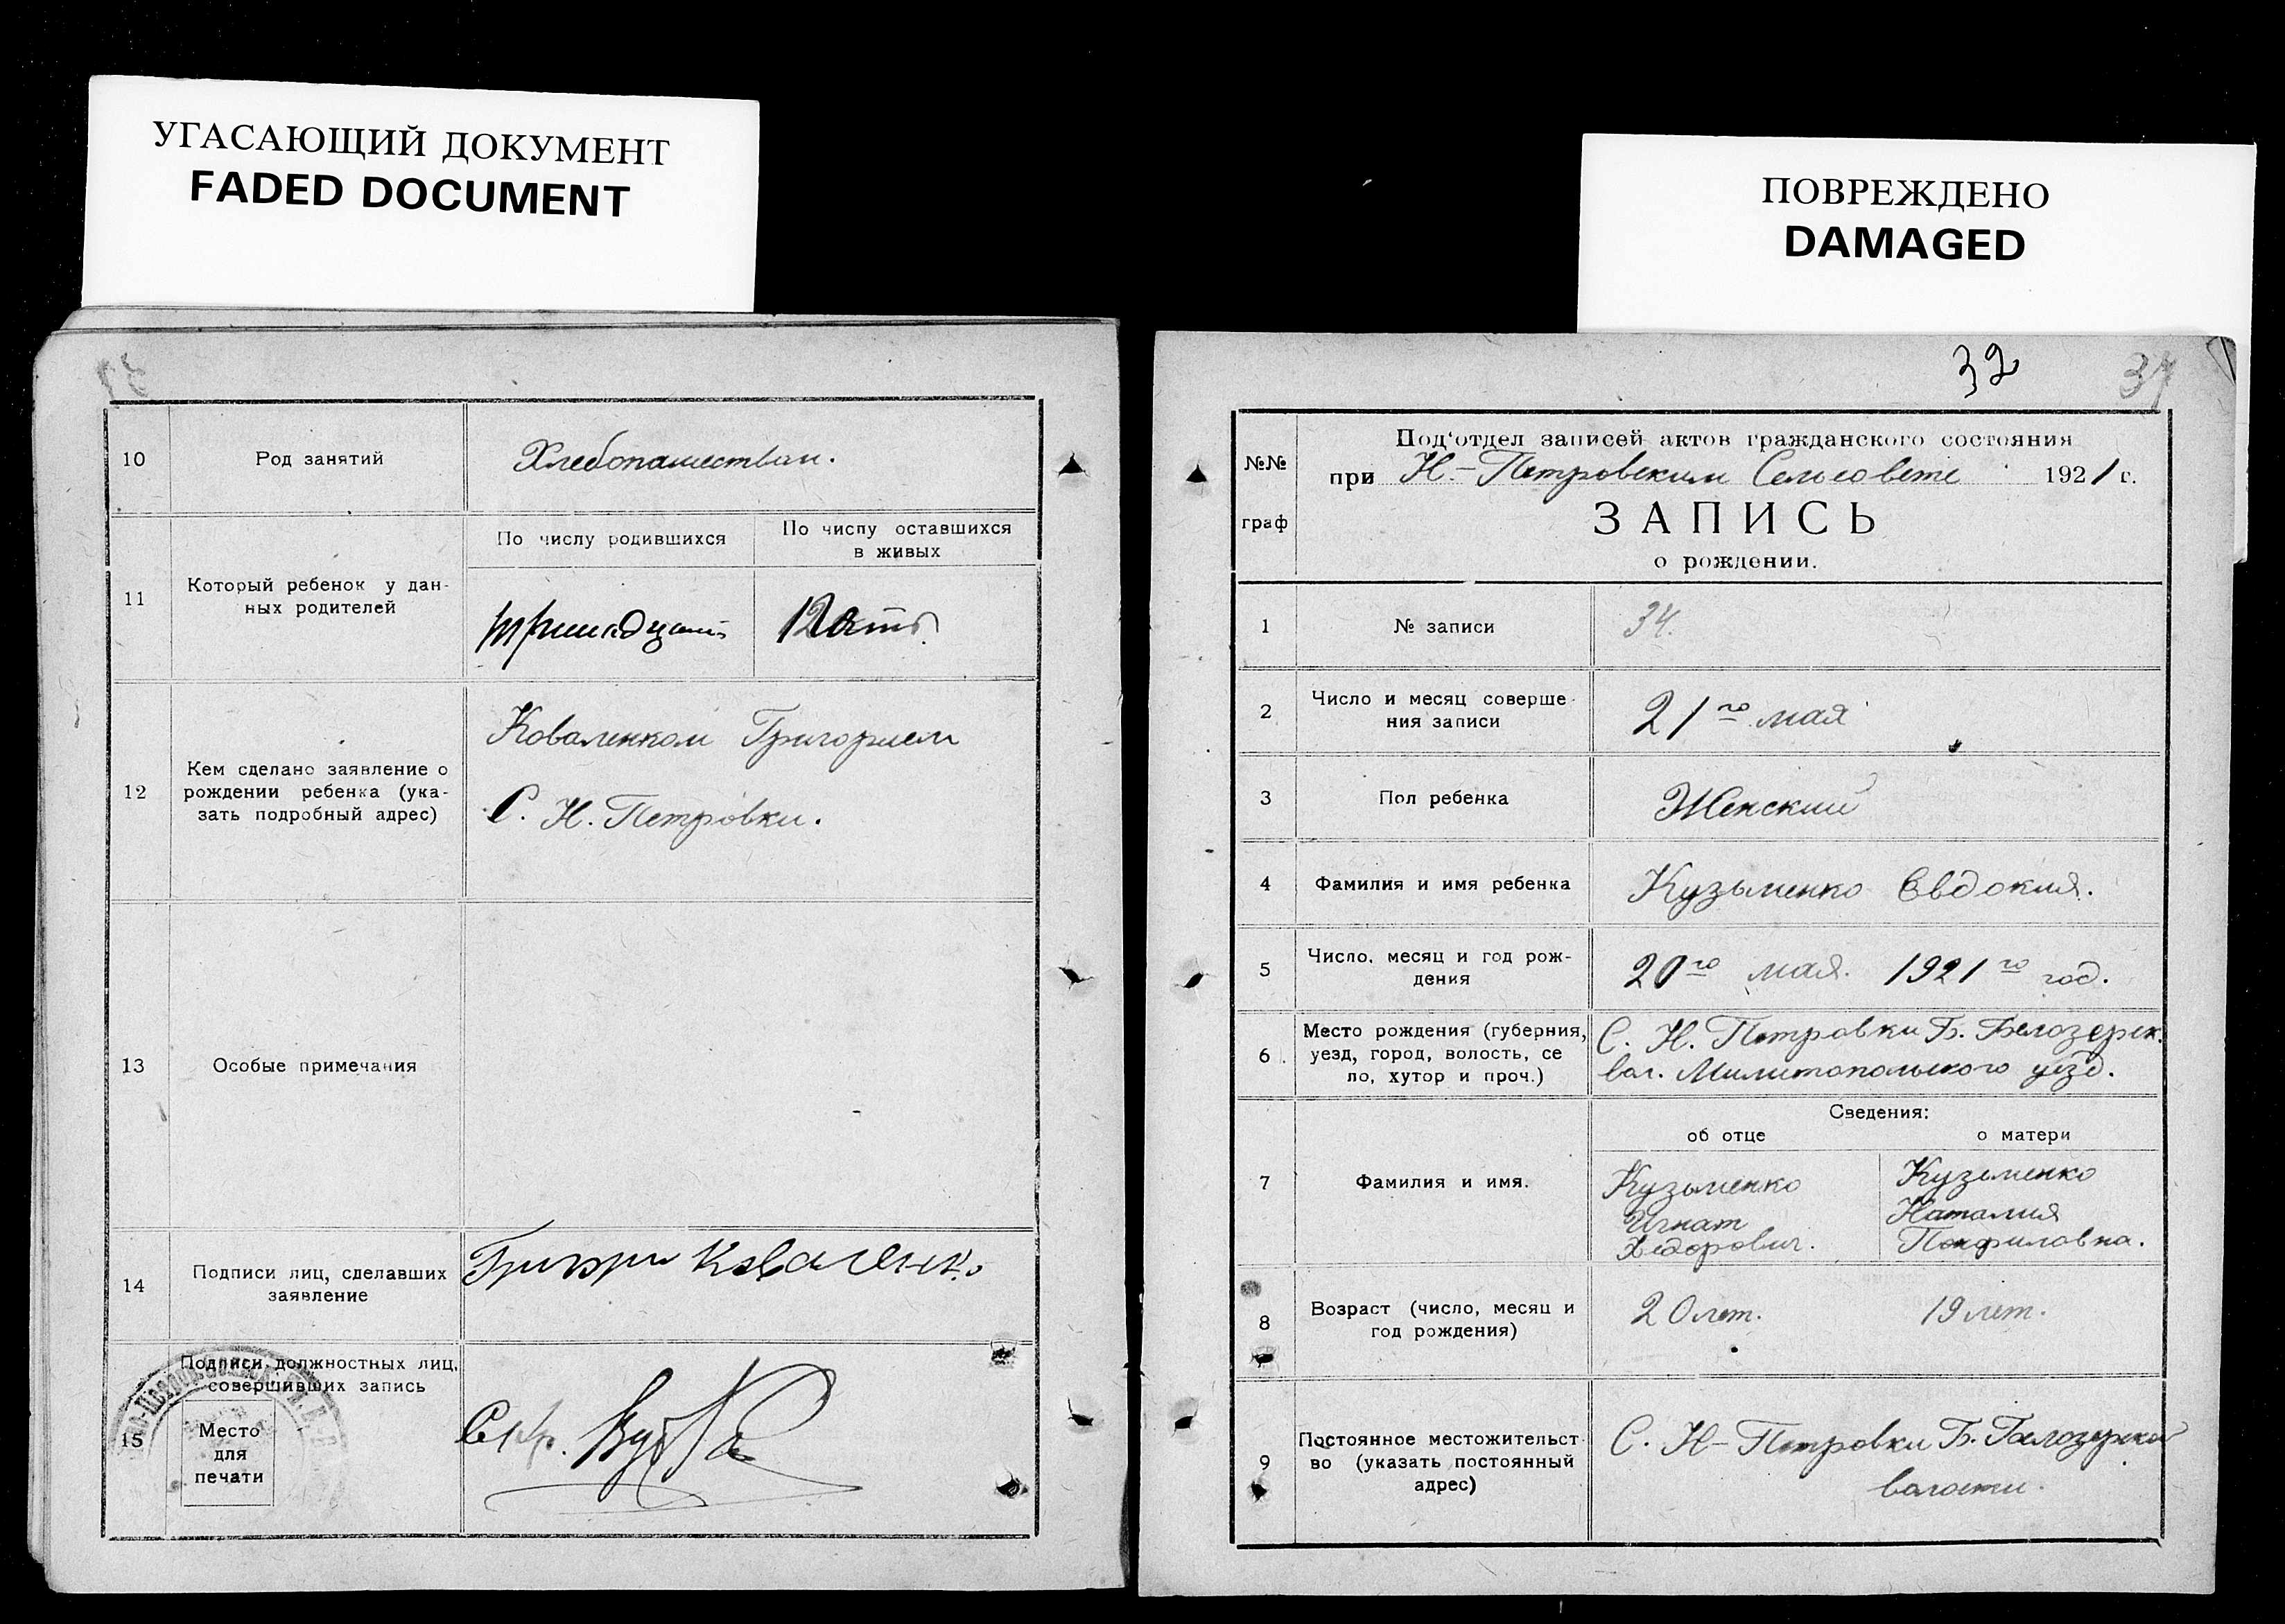 УГАСАЮЩИЙ ДОКУМЕНТ
FADED DOCUMENT
ПОВРЕЖДЕНО
DAMAGED
10
Род занятий
Хлебопашеством.
11
Который ребенок у дан-
ных родителей
По числу родившихся
По числу оставшихся
в живых
тринадцать
12
Кем сделано заявление о
рождении ребенка (ука-
зать подробный адрес)
Коваленком Григорием
С. Н. Петровки.
13
Особые примечания
14
Подписи лиц, сделавших
заявление
Григори Коваленко
15
Подписи должностных лиц,
совершивших запись
Место
для
печати
32
34
№№
граф
Под'отдел записей актов гражданского состояния
при Н.-Петровским Сельсовете 1921 г.
ЗАПИСЬ
о рождении.
1
№ записи
34.
2
Число и месяц соверше-
ния записи
21го мая
3
Пол ребенка
Женский
4
Фамилия и имя ребенка
Кузьменко Евдокия.
5
Число, месяц и год рож-
дения
20го мая. 1921го год.
6
Место рождения (губерния,
уезд, город, волость, се
ло, хутор и проч.)
С. Н. Петровки Б. Белозерск.
вол. Милитопольского уезд.
7
Фамилия и имя.
Сведения:
об отце
о матери
Кузьменко
Игнат
Хведорович.
Кузьменко
Наталия
Панфиловна.
8
Возраст (число, месяц и
год рождения)
20 лет.
19 лет.
9
Постоянное местожительст-
во (указать постоянный
адрес)
С. Н-Петровки Б. Белозерской
волости.